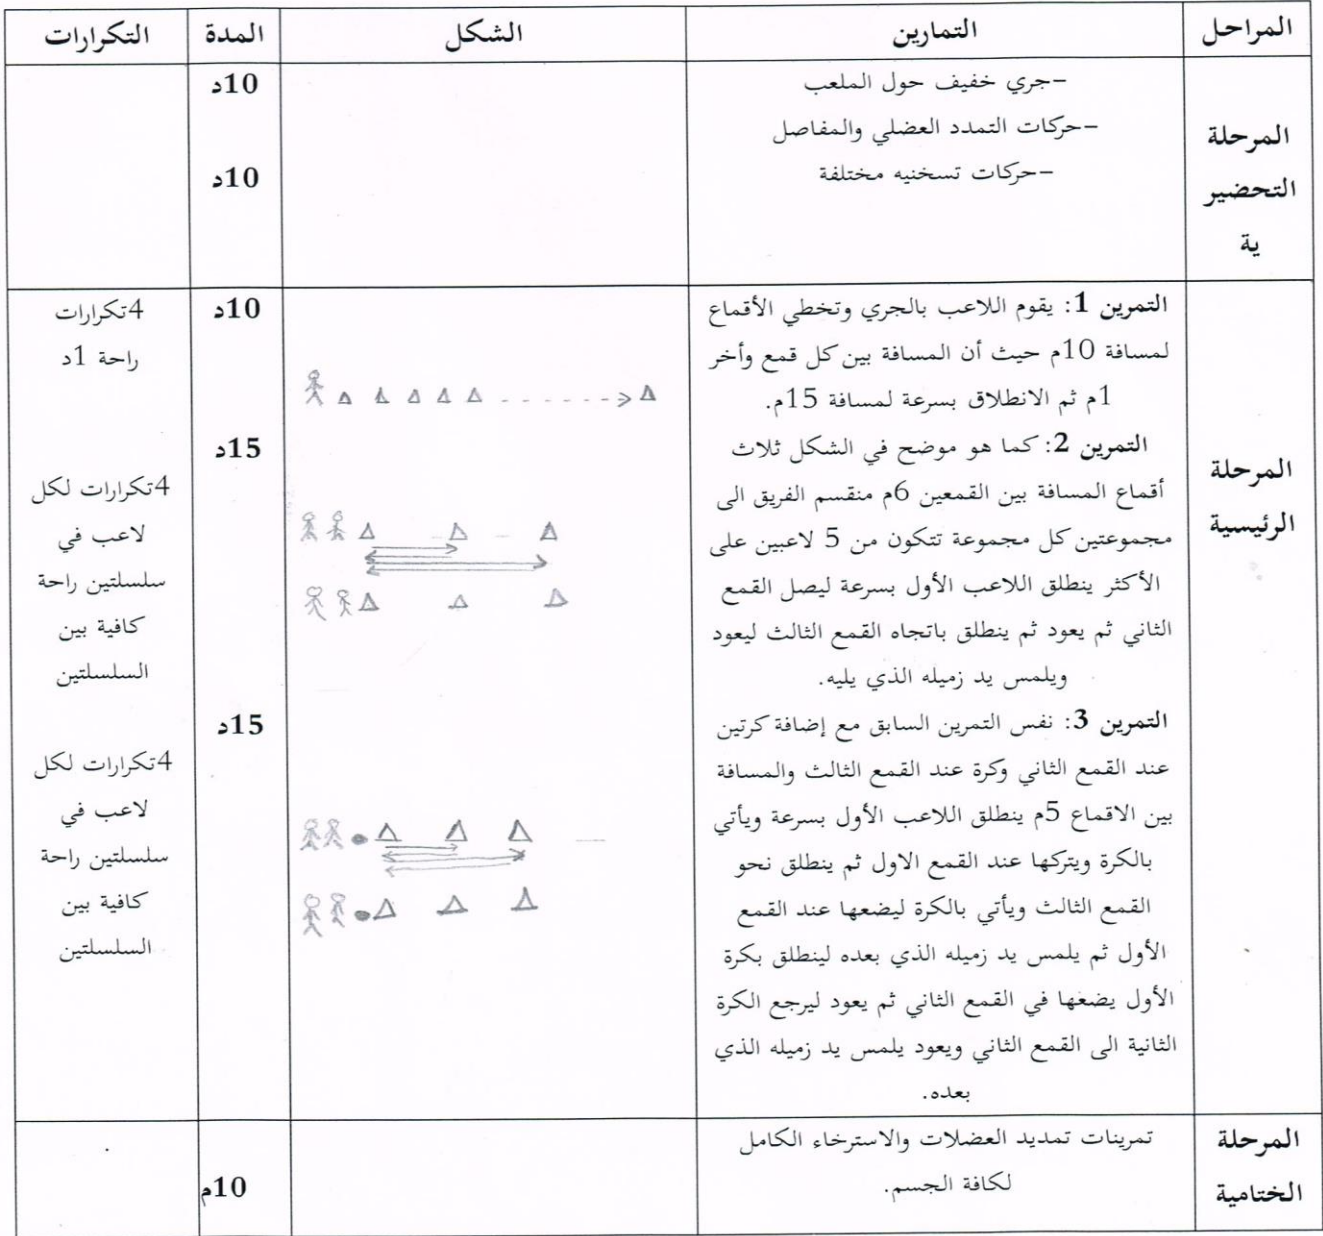 المراحل
التمارين
الشكل
المدة
التكرارات
المرحلة
التحضير
ية
-جري خفيف حول الملعب
-حركات التمدد العضلي والمفاصل
-حركات تسخنيه مختلفة
10د
10د
المرحلة
الرئيسية
التمرين 1: يقوم اللاعب بالجري وتخطي الأقماع
لمسافة 10م حيث أن المسافة بين كل قمع وأخر
1م ثم الانطلاق بسرعة لمسافة 15م.
التمرين 2: كما هو موضح في الشكل ثلاث
أقماع المسافة بين القمعين 6م منقسم الفريق الى
مجموعتين كل مجموعة تتكون من 5 لاعبين على
الأكثر ينطلق اللاعب الأول بسرعة ليصل القمع
الثاني ثم يعود ثم ينطلق باتجاه القمع الثالث ليعود
ويلمس يد زميله الذي يليه.
التمرين 3: نفس التمرين السابق مع إضافة كرتين
عند القمع الثاني وكرة عند القمع الثالث والمسافة
بين الاقماع 5م ينطلق اللاعب الأول بسرعة ويأتي
بالكرة ويتركها عند القمع الاول ثم ينطلق نحو
القمع الثالث ويأتي بالكرة ليضعها عند القمع
الأول ثم يلمس يد زميله الذي بعده لينطلق بكرة
الأول يضعها في القمع الثاني ثم يعود ليرجع الكرة
الثانية الى القمع الثاني ويعود يلمس يد زميله الذي
بعده.
10د
15د
15د
4تكرارات
راحة 1د
4تكرارات لكل
لاعب في
سلسلتين راحة
كافية بين
السلسلتين
4تكرارات لكل
لاعب في
سلسلتين راحة
كافية بين
السلسلتين
المرحلة
الختامية
تمرينات تمديد العضلات والاسترخاء الكامل
لكافة الجسم.
10م